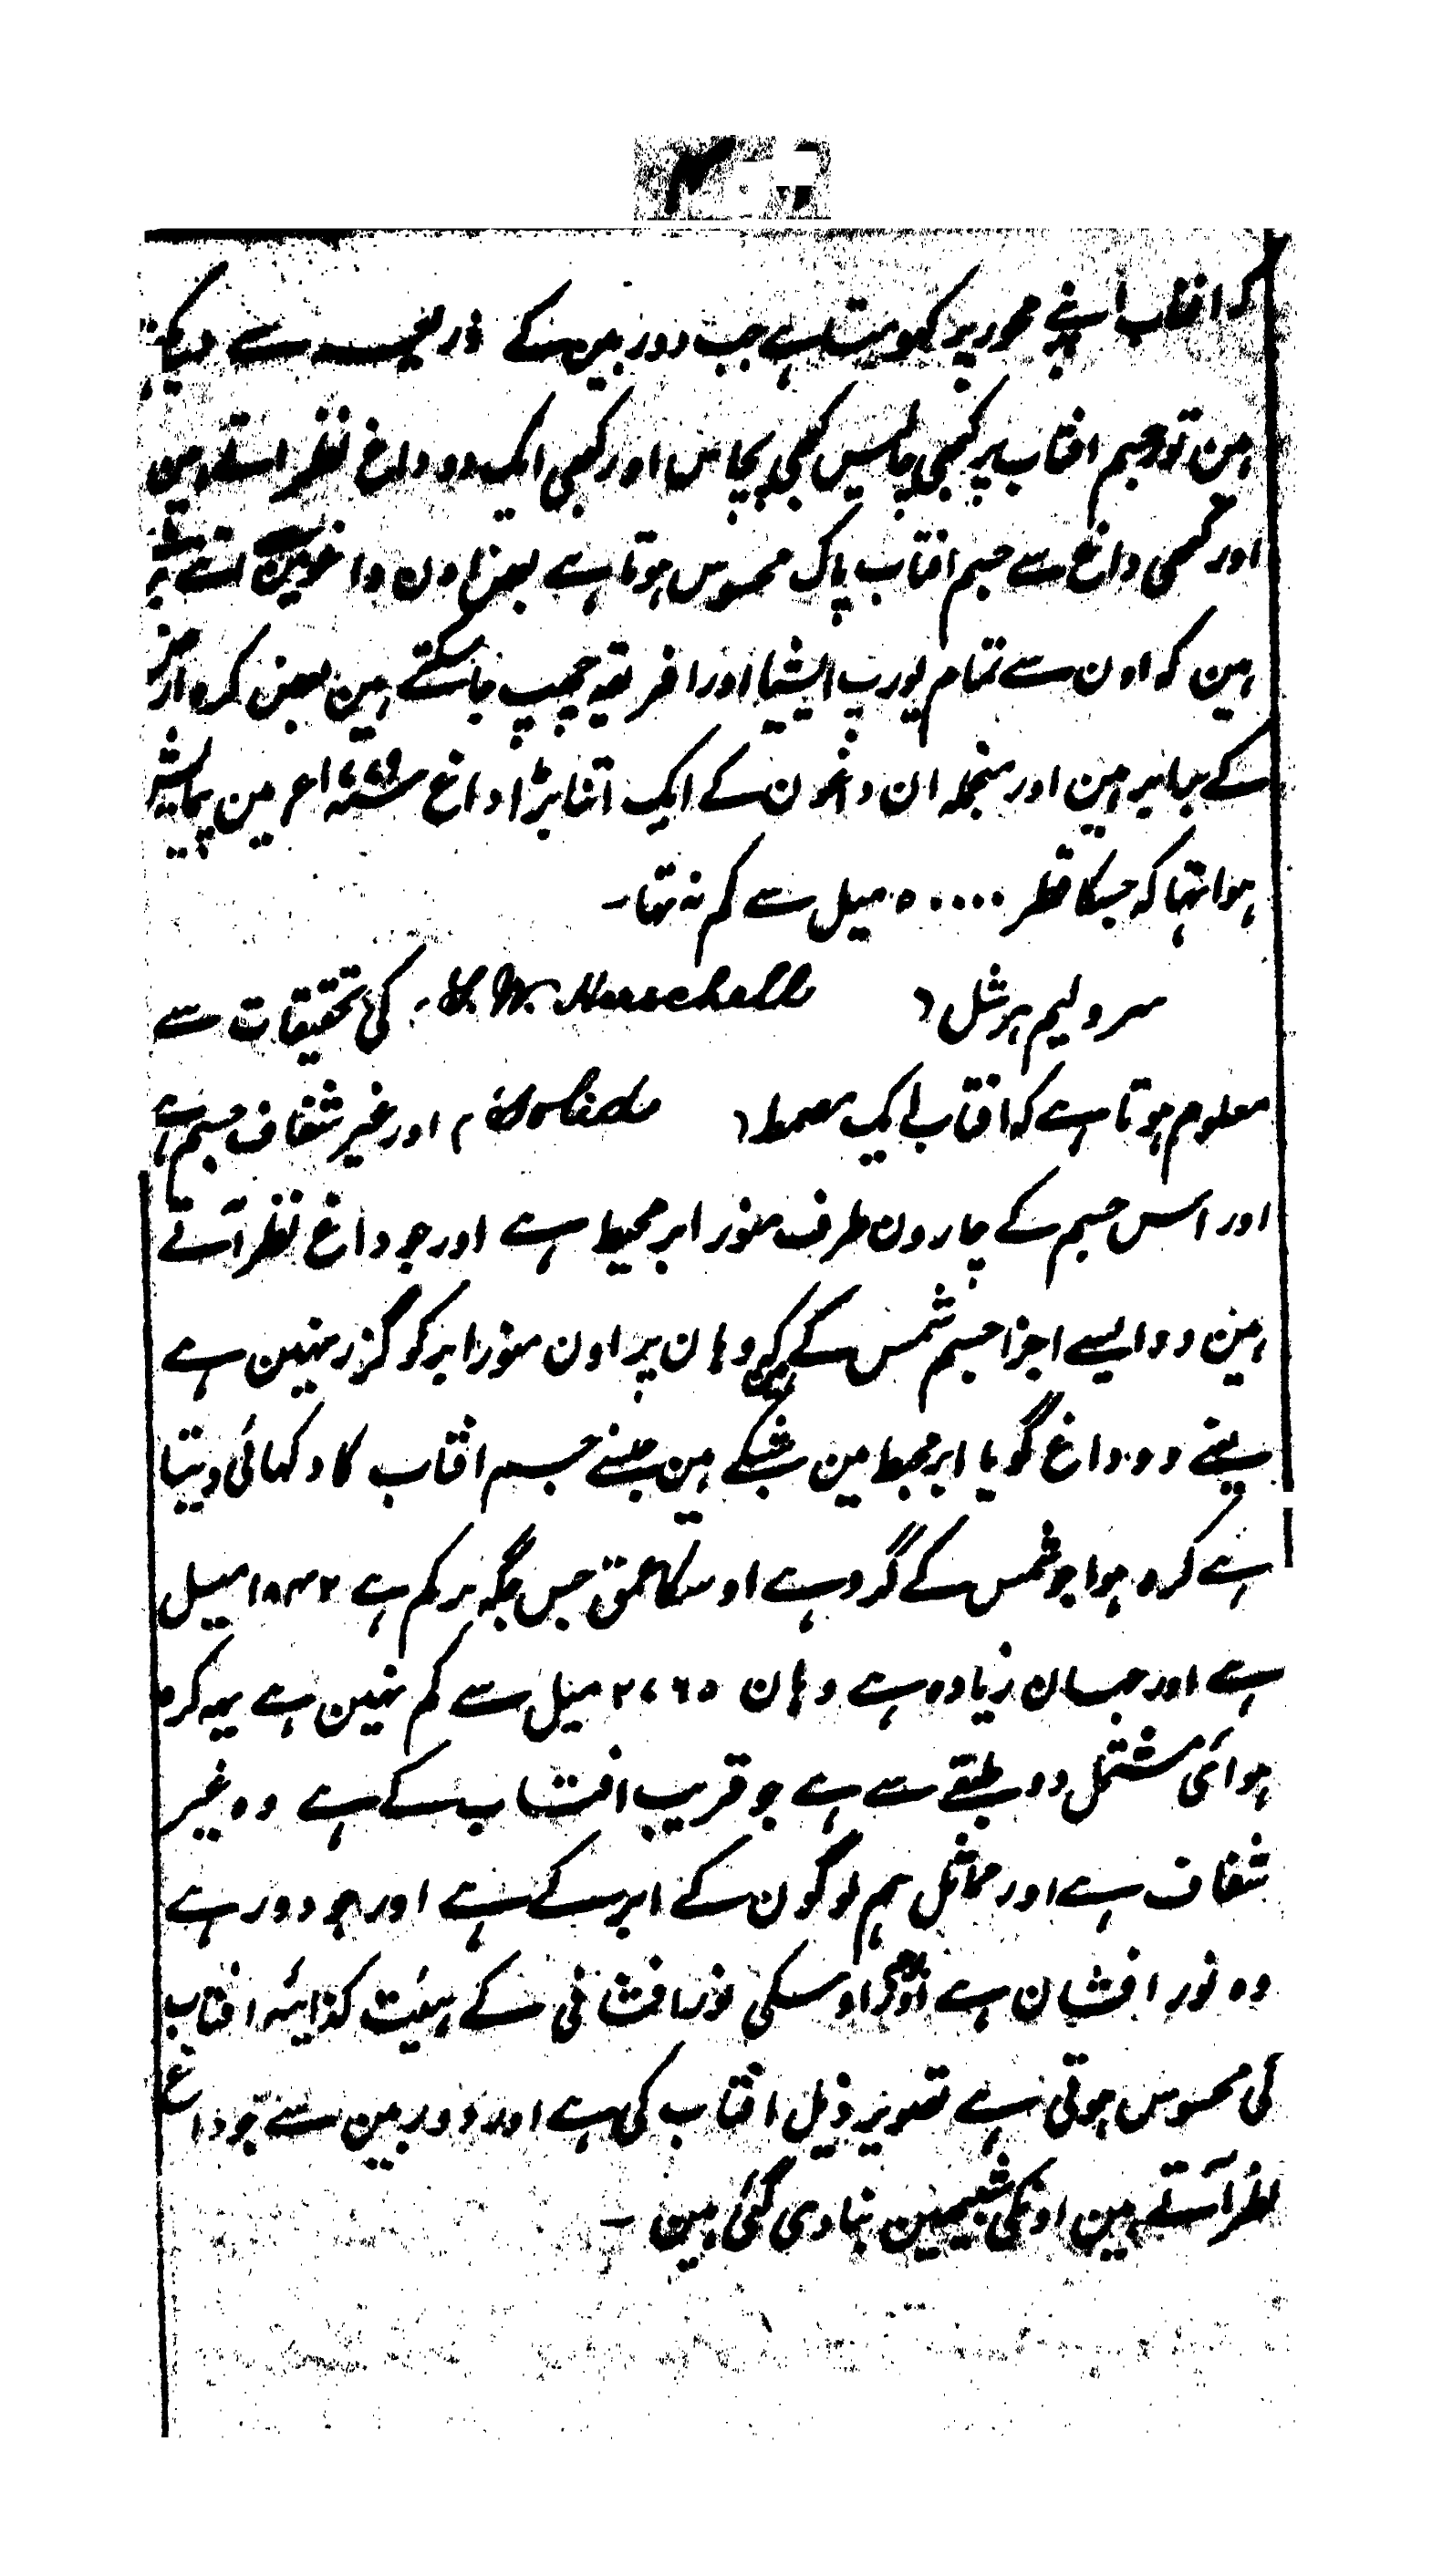 کہ افتاب اپنے محور پر گھومتا ہے جب دوربین کے ذریعہ سے دیکھتے
ہین تو جسم افتاب پر کبھی چالیس کبھی پچاس اور کبھی ایک دو داغ نظر اتے ہین
اور کسی داغ سے جسم افتاب پاک محسوس ہوتا ہے بعض اون داغونمین اتنے بڑے
ہین کہ اون سے تمام یورپ ایشیا اور افریقہ چھپ جاسکتے ہین بعض کرہ ارض
کے برابر ہین اور منجملہ ان داغون کے ایک اتنا بڑا داغ سنہ ۱۷۷۹م مین پیمایش
ہوا تہا کہ جسکا قطر ۵۰۰۰۰ میل سے کم نہ تہا۔
سر ولیم ہرشل ( S. W. Herschell ) کی تحقیقات سے
معلوم ہوتا ہے کہ افتاب ایک مصمط ( Solid ) اور غیر شفاف جسم ہے
اور اس جسم کے چارون طرف منور ابر محیط ہے اور جو داغ نظر آتے
ہین وہ ایسے اجزا جسم شمس کے ہین کہ وہان پر اون منور ابر کو گزر نہین ہے
یعنے وہ داغ گویا ابر محیط مین شبکے ہین جنسے جسم افتاب کا دکہائی دیتا
ہے کرہ ہوا جو شمس کے گرد ہے اوسکا عمق جس جگہ پر کم ہے ۱۸۴۲ میل
ہے اور جہان زیادہ ہے وہان ۲۷۶۵ میل سے کم نہین ہے یہہ کرہ
ہوائی مشتمل دو طبقے سے ہے جو قریب افتاب کے ہے وہ غیر
شفاف ہے اور مماثل ہم لوگون کے ابر کے ہے اور جو دور ہے
وہ نور افشان ہے اور اوسکی نور افشانی کے ہیئت کذائیہ افتاب
کی محسوس ہوتی ہے تصویر ذیل افتاب کی ہے اور دوربین سے جو داغ
نظر آتے ہین اونکی شبیہین بنا دی گئی ہین ۔